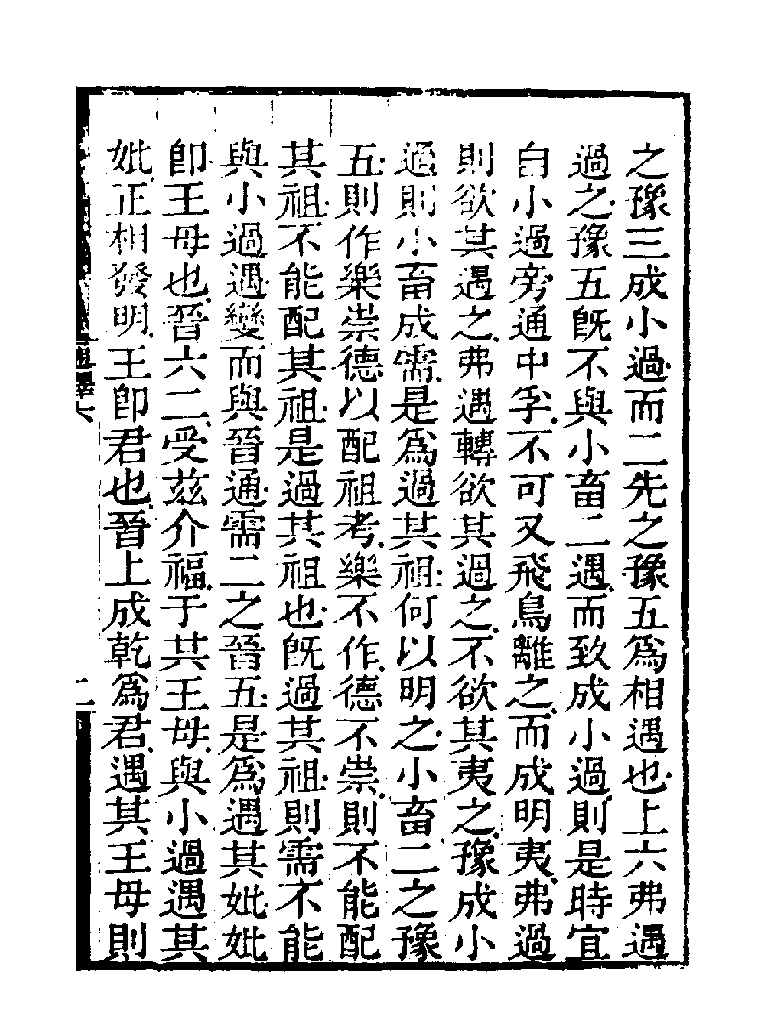 之豫三成小過而二先之豫五爲相遇也上六弗遇
過之豫五旣不與小畜二遇而致成小過則是時宜
自小過旁通中孚不可又飛鳥離之而成明夷弗過
則欲其遇之弗遇轉欲其過之不欲其夷之豫成小
過則小畜成需是爲過其祖何以明之小畜二之豫
五則作樂崇德以配祖考樂不作德不崇則不能配
其祖不能配其祖是過其祖也旣過其祖則需不能
與小過遇變而與晉通需二之晉五是爲遇其妣妣
卽王母也晉六二受茲介福于其王母與小過遇其
妣正相發明王卽君也晉上成乾爲君遇其王母則
二